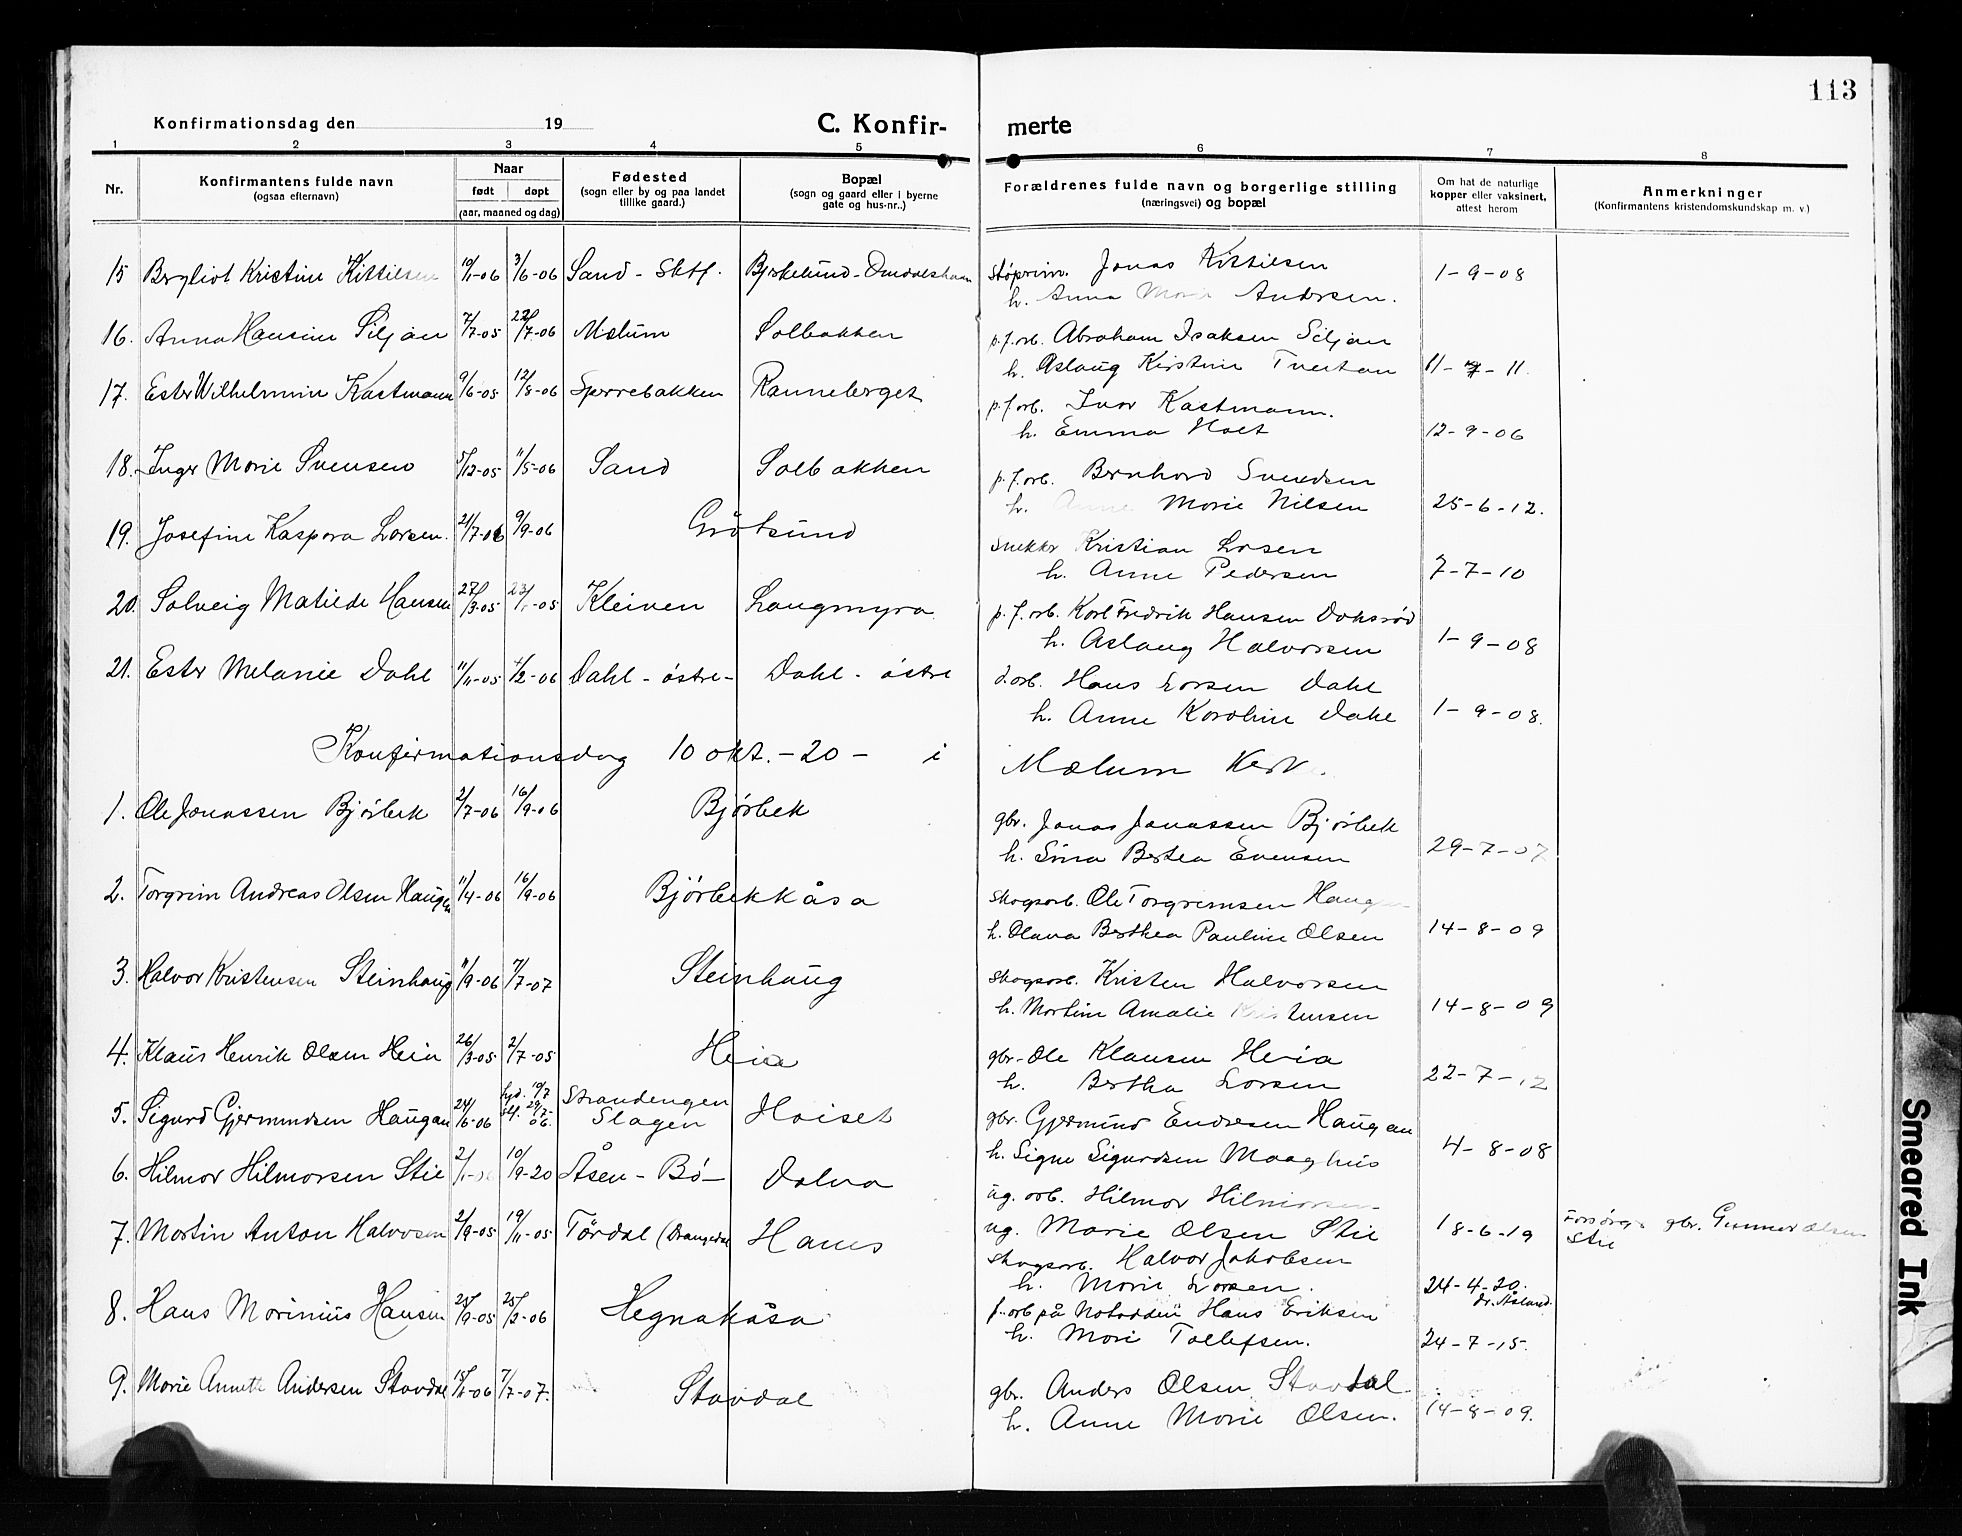 113
Konfirmationsdag den 19 C. Konfir- merte
1 2 3 4 5 6 7 8
Nr. Konfirmantens fulde navn (ogsaa efternavn) Naar født døpt (aar, maaned og dag) Fødested (sogn eller by og paa landet tillike gaard.) Bopæl (sogn og gaard eller i byerne gate og hus-nr..) Forældrenes fulde navn og borgerlige stilling (næringsvei) og bopæl Om hat de naturlige kopper eller vaksinert, attest herom Anmerkninger (Konfirmantens kristendomskundskap m. v.)
15 Bergliot Kristine Kittilsen 3/6-06 Sand - Sktf. Bjerkelund Jonas Kittilsen 1-9-08
h. Anna Marie Andersen.
16. Anna Hansine Siljan 7/7-05 22/7-06 Melum Solbakken p.f.arb. Abraham Isaksen Siljan
h. Aslaug Kirstine Tveitan 11-7-11.
17. Ester Wilhelmine Kastmann 9/6-05 12/8-06 Sperrebakken Ranneberget p.f.arb. Ivar Kastmann.
h. Emma Holt 12-9-06
18. Inger Marie Svensen 5/12-05 1/5-06 Sand Solbakken p.f.arb. Bernhard Svendsen
h. Anne Marie Nilsen 25-6-12.
19. Josefine Kaspara Larsen. 21/7-06 9/9-06 Gråtsund Snekker Kristian Larsen
h. Anne Pedersen 7-7-10
20. Solveig Matilde Hansen 27/3-05 Kleiven Langmyra p.f.arb. Karl Fredrik Hansen Doksrød
h. Aslaug Halvorsen 1-9-08
21. Ester Melanie Dahl 11/11-05 Dahl - østre- Dahl - østre d.arb. Hans Larsen Dahl
h. Anne Karoline Dahl 1-9-08.
Konfirmationsdag 10 okt. -20- i Melum Kirke.
1. Ole Jonassen Bjørbek 2/7-06 16/9-06 Bjørbek gbr. Jonas Jonassen Bjørbek
h. Sina Bertea Evensen 29-7-07
2. Torgrim Andreas Olsen Haugen 11/4-06 16/9-06 Bjørbekkåsa Skogsarb. Ole Torgrimsen Haugen
h. Olava Berthea Pauline Olsen 14-8-09
3. Halvor Kristensen Steinhaug 11/9-06 7/7-07 Steinhaug Skogsarb. Kristen Halvorsen
h. Martine Amalie Kristensen 14-8-09
4. Klaus Henrik Olsen Heia 26/3-05 2/7-05 Heia gbr. Ole Klausen Heia
h. Bertha Larsen 22-7-12
5. Sigurd Gjermundsen Haugan 24/6-06 Strandengen Slagen Hoiset gbr. Gjermund Endresen Haugan
h. Signe Sigurdsen Maaghus 4-8-08
6. Hilmar Hilmarsen Stie 10/9-20 Åsen - Bø - Dalva ug. arb. Hilmar Hilmarsen
ug. Marie Olsen Stie 18-6-19 gbr. Gunner Olsen Stie
7. Martin Anton Halvorsen 2/9-05 19/11-05 Tørdal (Drangedal Hanes Skogsarb. Halvor Jakobsen
h. Marie Larsen. 24-4-20. dr. Åsland.
8. Hans Marinius Hansen 25/9-05 25/2-06 Hegnakåsa f.arb på Notodden Hans Eriksen
h. Mari Tollefsen. 24-7-15.
9. Marie Annette Andersen Stavdal 7/7-07. Stavdal gbr. Anders Olsen Stavdal
h. Anne Marie Olsen. 14-8-09.
Smeared Ink